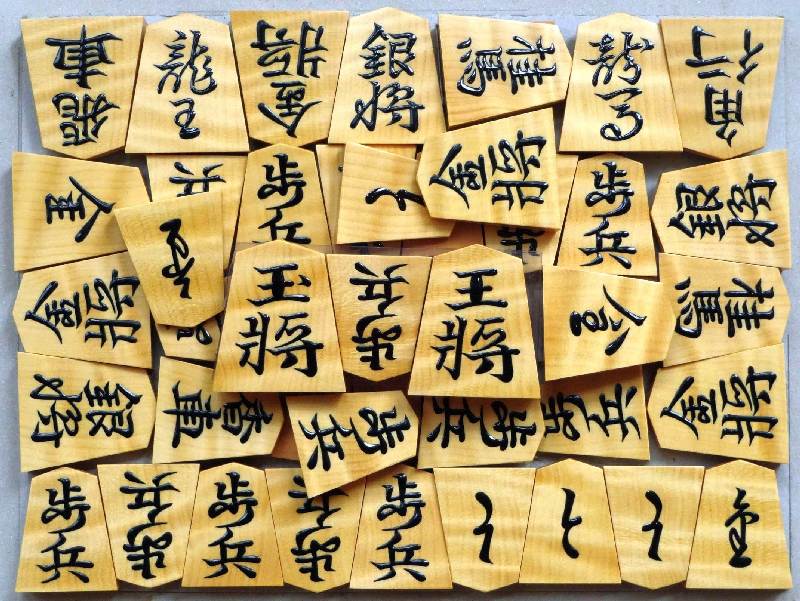 飛車
龍王
金将
銀将
桂馬
龍馬
角行
歩兵
と
金将
歩兵
銀将
金将
玉将
歩兵
王将
桂馬
銀将
香車
歩兵
歩兵
歩兵
金将
歩兵
歩兵
歩兵
歩兵
歩兵
と
と
と